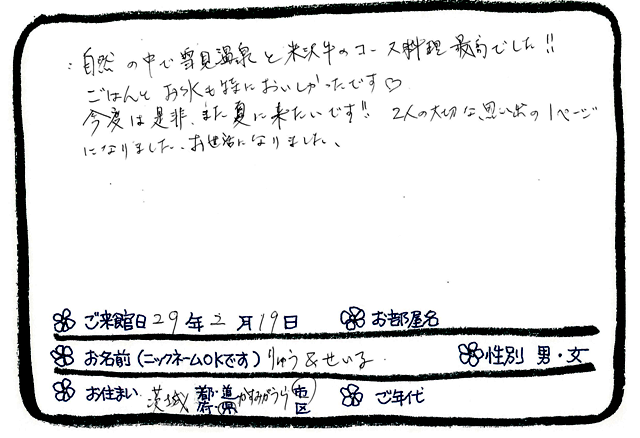 自然の中で雪見温泉と米沢牛のコース料理最高でした!!
ごはんと お水も特においしかったです♡
今度は是非、また夏に来たいです!! 2人の大切な思い出の1ページ
になりました、お世話になりました、
ご来館日 29年 2月19日 お部屋名
お名前(ニックネームOKです) りゅう&せいる 性別 男・女
お住まい 茨城 都・道・府・県 かすみがうら 市区 ご年代